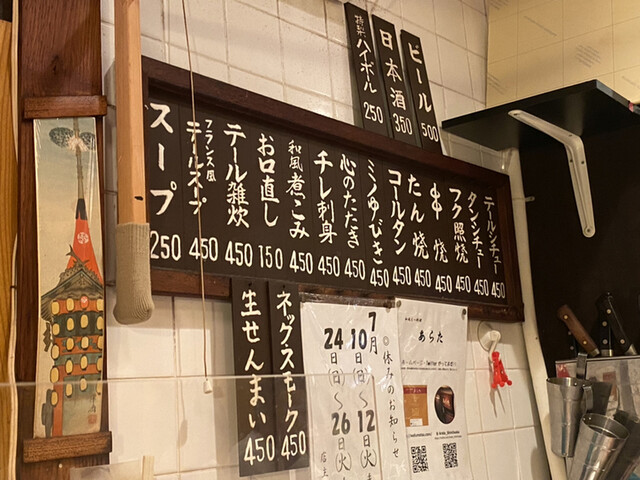 ビール 500
日本酒 350
特製ハイボール 250
テールシチュー 450
タンシチュー 450
フク照焼 450
串焼 450
たん焼 450
コールタン 450
ミノゆびき 450
心のたたき 450
チレ刺身 450
和風煮こみ 450
お口直し 150
テール雑炊 450
フランス風テールスープ 450
スープ 250
ネックスモーク 450
生せんまい 450
◎休みのお知らせ
7月
10日(日)～12日(火)
24日(日)～26日(火)
店主
あらた